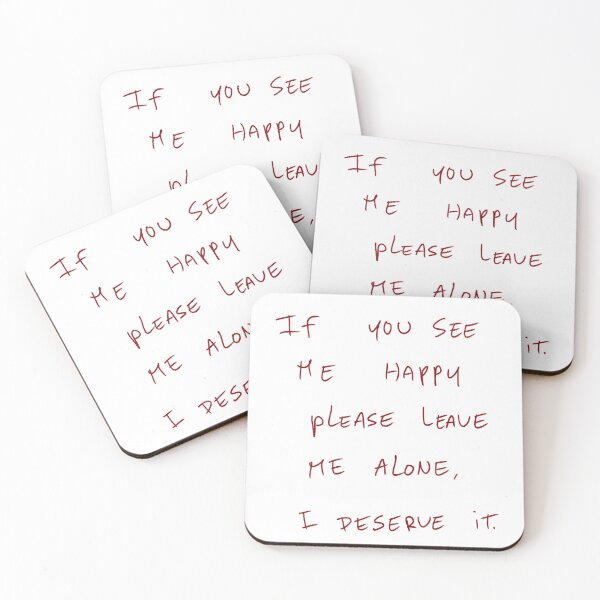 If you see
me happy
pl leav
e,
If you see
me happy
please leave
me alone
it.
If you see
me happy
please leave
me alon
I dese
If you see
me happy
please leave
me alone,
I deserve it.